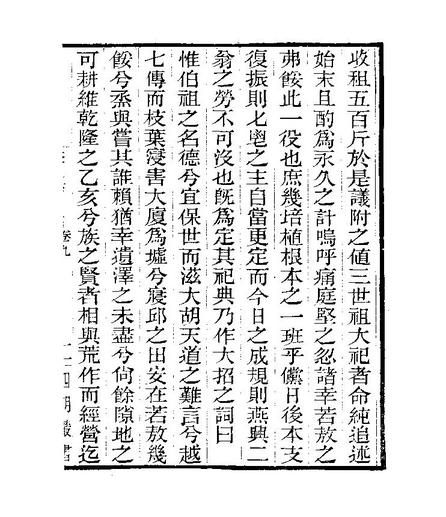 收租五百斤於是議附之値三世祖大祀者命純追述
始末且酌爲永久之計嗚呼痛庭堅之忽諸幸若敖之
弗餒此一役也庶幾培植根本之一班乎儻日後本支
復振則七鬯之主自當更定而今日之成規則燕興二
翁之勞不可沒也旣爲定其祀典乃作大招之詞曰
惟伯祖之名德兮宜保世而滋大胡天道之難言兮越
七傳而枝葉寖害大廈爲墟兮寢邱之田安在若敖幾
餒兮烝與嘗其誰賴猶幸遺澤之未盡兮尙餘隙地之
可耕維乾隆之乙亥兮族之賢者相與荒作而經營迄
卷九
四明叢書